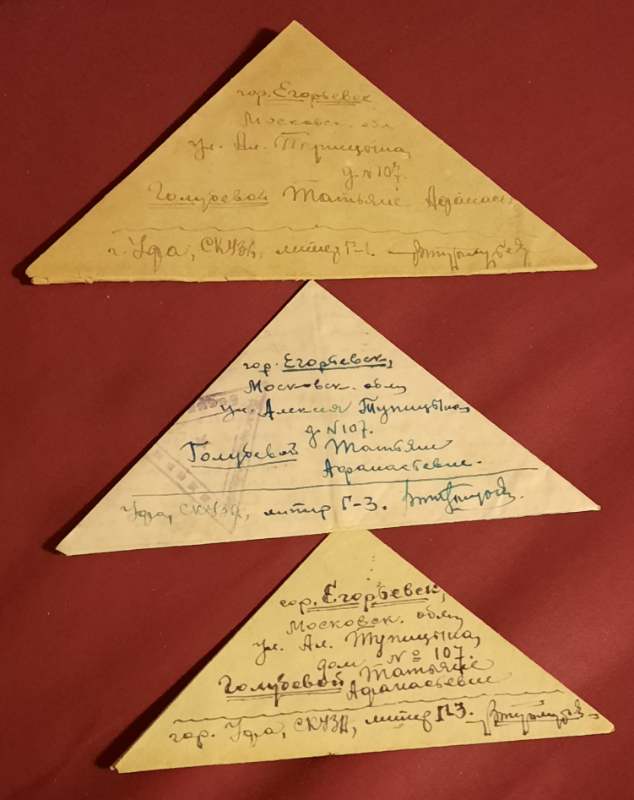 гор. Егорьевск
Московск. обл.
ул. Ал. Тупицына,
д. № 107.
Голубевой Татьяне Афанасье
г. Уфа, СКУЗА, литер Г-1.
гор. Егорьевск,
Московск. обл.
ул. Алексея Тупицына
д. № 107.
Голубевой Татьяне
Афанасьевне.
Уфа, СКУЗА, литер Г-3.
гор. Егорьевск,
Московск. обл.
ул. Ал. Тупицына,
дом № 107.
Голубевой Татьяне
Афанасьевне
гор. Уфа, СКУЗА, литер Г-3.